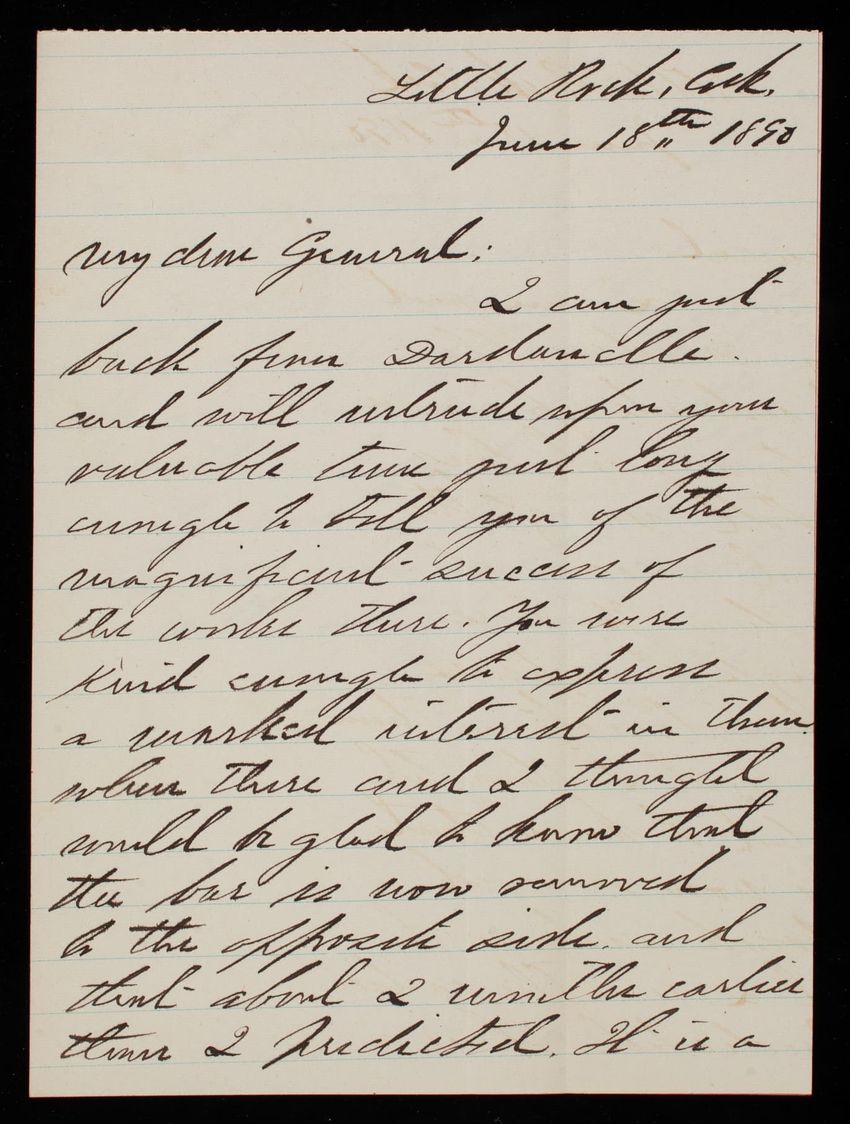 Little Rock, Ark,
June 18th 1890
My dear General;
I am just
back from Dardanelle.
and will intrude upon your
valuable time just long
enough to tell you of the
magnificent success of
the works there. You were
kind enough to express
a marked interest in them
when there and I thought
would be glad to know that
the bar is now removed
to the opposite side. and
that about 2 months earlier
than I predicted. It is a